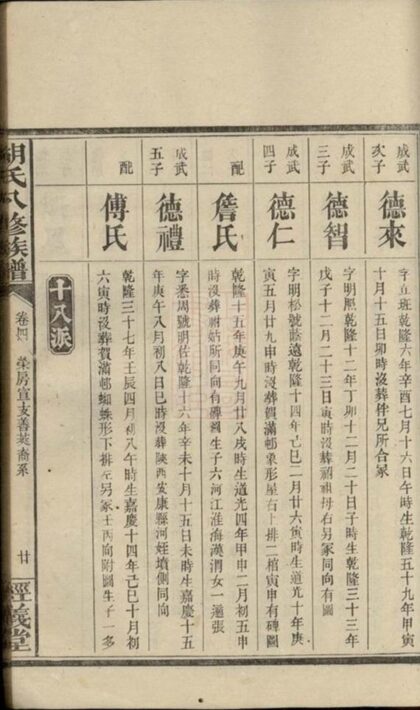 次子
成武
德來
字立班乾隆六年辛酉七月十六日午時生乾隆五十九年甲寅
十月十五日卯時沒葬伴兄所合冢
三子
成武
德智
字明熙乾隆十二年丁卯十二月二十日子時生乾隆三十三年
戊子十二月二十三日寅時沒葬祖祖母右另冢同向有圖
四子
成武
德仁
字明松號蔭遠乾隆十四年己巳二月廿六寅時生道光十年庚
寅五月廿九申時沒葬賀滿邨象形屋右上排二棺寅申有碑圖
配
詹氏
乾隆十五年庚午九月廿八戌時生道光四年甲申二月初五申
時沒葬祔姑所同向有碑圖生子六河江淮海漢渭女一適張
五子
成武
德禮
字悉周號明佐乾隆十六年辛未十月十五日未時生嘉慶十五
年庚午八月初八日巳時沒葬陝西安康縣河姪墳側同向
配
傅氏
乾隆三十七年壬辰四月初八午時生嘉慶十四年己巳十月初
六寅時沒葬賀滿邨蜘蛛形下排左另冢壬丙向附圖生子一多
十八派
胡氏八修族譜
卷四
榮房宣支善萊裔系
廿
經義堂